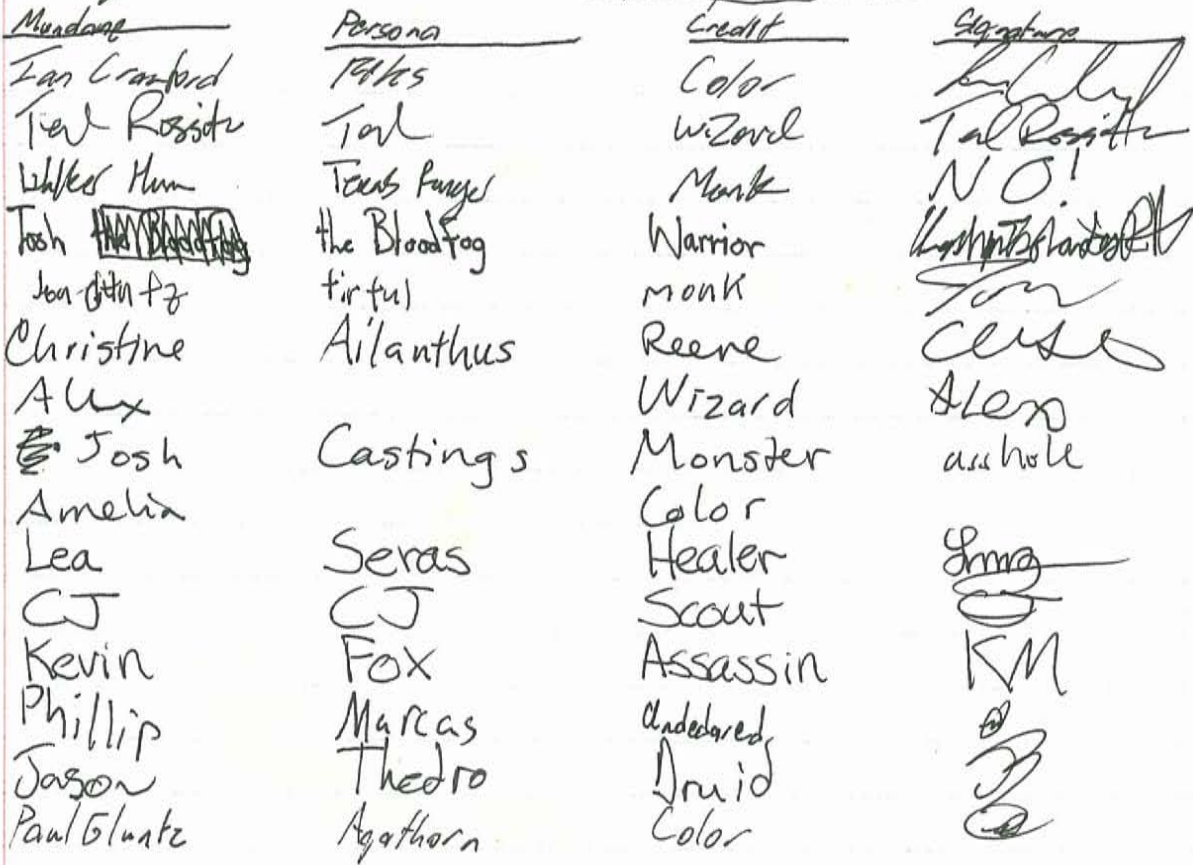 Mundane Persona Credit Signature
Ian Crawford Color
Teal Rossitr Teal Wizard Teal Rossittr
Walker Texas Ranger Monk NO!
Josh the Bloodfog Warrior
tirful monk
Christine Ailanthus Reeve
Alex Wizard Alex
Josh Castings Monster asshole
Amelia Color
Lea Seras Healer
CJ CJ Scout CJ
Kevin Fox Assassin KM
Phillip Marcas Undedared
Jason Thedro Druid
Paul Gluntz Agathorn Color